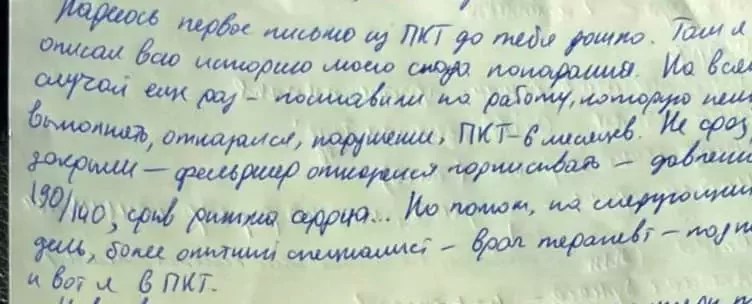 Надеюсь первое письмо из ПКТ до тебя дошло. Там я
описал всю историю моего сюда попадания. На всяк
случай еще раз – поставили на работу, которую нель
выполнять, отказался, нарушение, ПКТ-6 месяцев. Не сраз
закрыли – фельдшер отказался подписывать – давлени
190/140, срыв ритма сердца... Но потом, на следующий
день, более опытный специалист – врач терапевт – подп
и вот я в ПКТ.